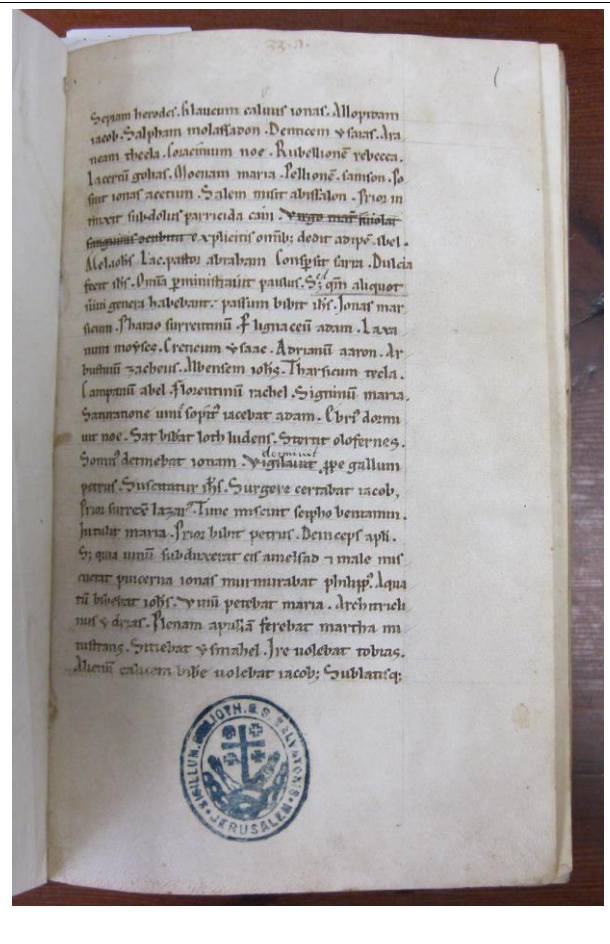 33. A.
Sepiam herodes. Glaucum caluus ionas. Allopidam
iacob. Salpham molassadon. Denticem ysaias. Ara
neam thecla. Coracinum noe. Rubellionē rebecca.
Lacertū golias. Moenam maria. Pellionē. samson. Po
suit ionas acetum. Salem misit abissalon. Prior in
tinxit subdolus parricida cain. Virgo mar
sanguinis explicitis omīb; dedit adipē. abel.
Mel. iohs Lac. pastor abraham Consp̄sit sarra. Dulcia
fecit ihs. Om̄ia p̄ministrauit paulus. S; qm̄ aliquot
uini genera habebant. passum bibit ihs. Ionas mar
sicum. Pharao surrentinū. Flignaceū adam. Laxa
num moyses. Creticum ysaac. Adrianū aaron. Ar
bustiuū zacheus. Albensem iohs. Tharsicum tecla.
Campanū abel. Florentinū rachel. Signinū maria.
Saturatione uini sopit' iacebat adam. Ebri' dormi
uit noe. Sat bibat loth ludens. Stertit olofernes.
dormiuit
Somn' detinebat ionam. Vigilauit ꝓpe gallum
petrus. Suscitatur ihs. Surgere certabat iacob,
Prior surrex' lazar'. Tunc miscuit scipho beniamin.
Intulit maria. Prior bibit petrus. Deinceps apli.
S; quia uinū subduxerat eis amelsad ⁊ male mis
cuerat pincerna ionas murmurabat philipp'. Aqua
tū bibebat iohs. Vinū petebat maria. Architricli
nus ydrias. Plenam ferebat martha mi
nistrans. Sitiebat ysmahel. Ire uolebat tobias.
Alienū calicem bibe uolebat iacob; Sublatisq;
SIGILLUM. BIBLIOTH. S. S. SALVATORIS
JERUSALEM